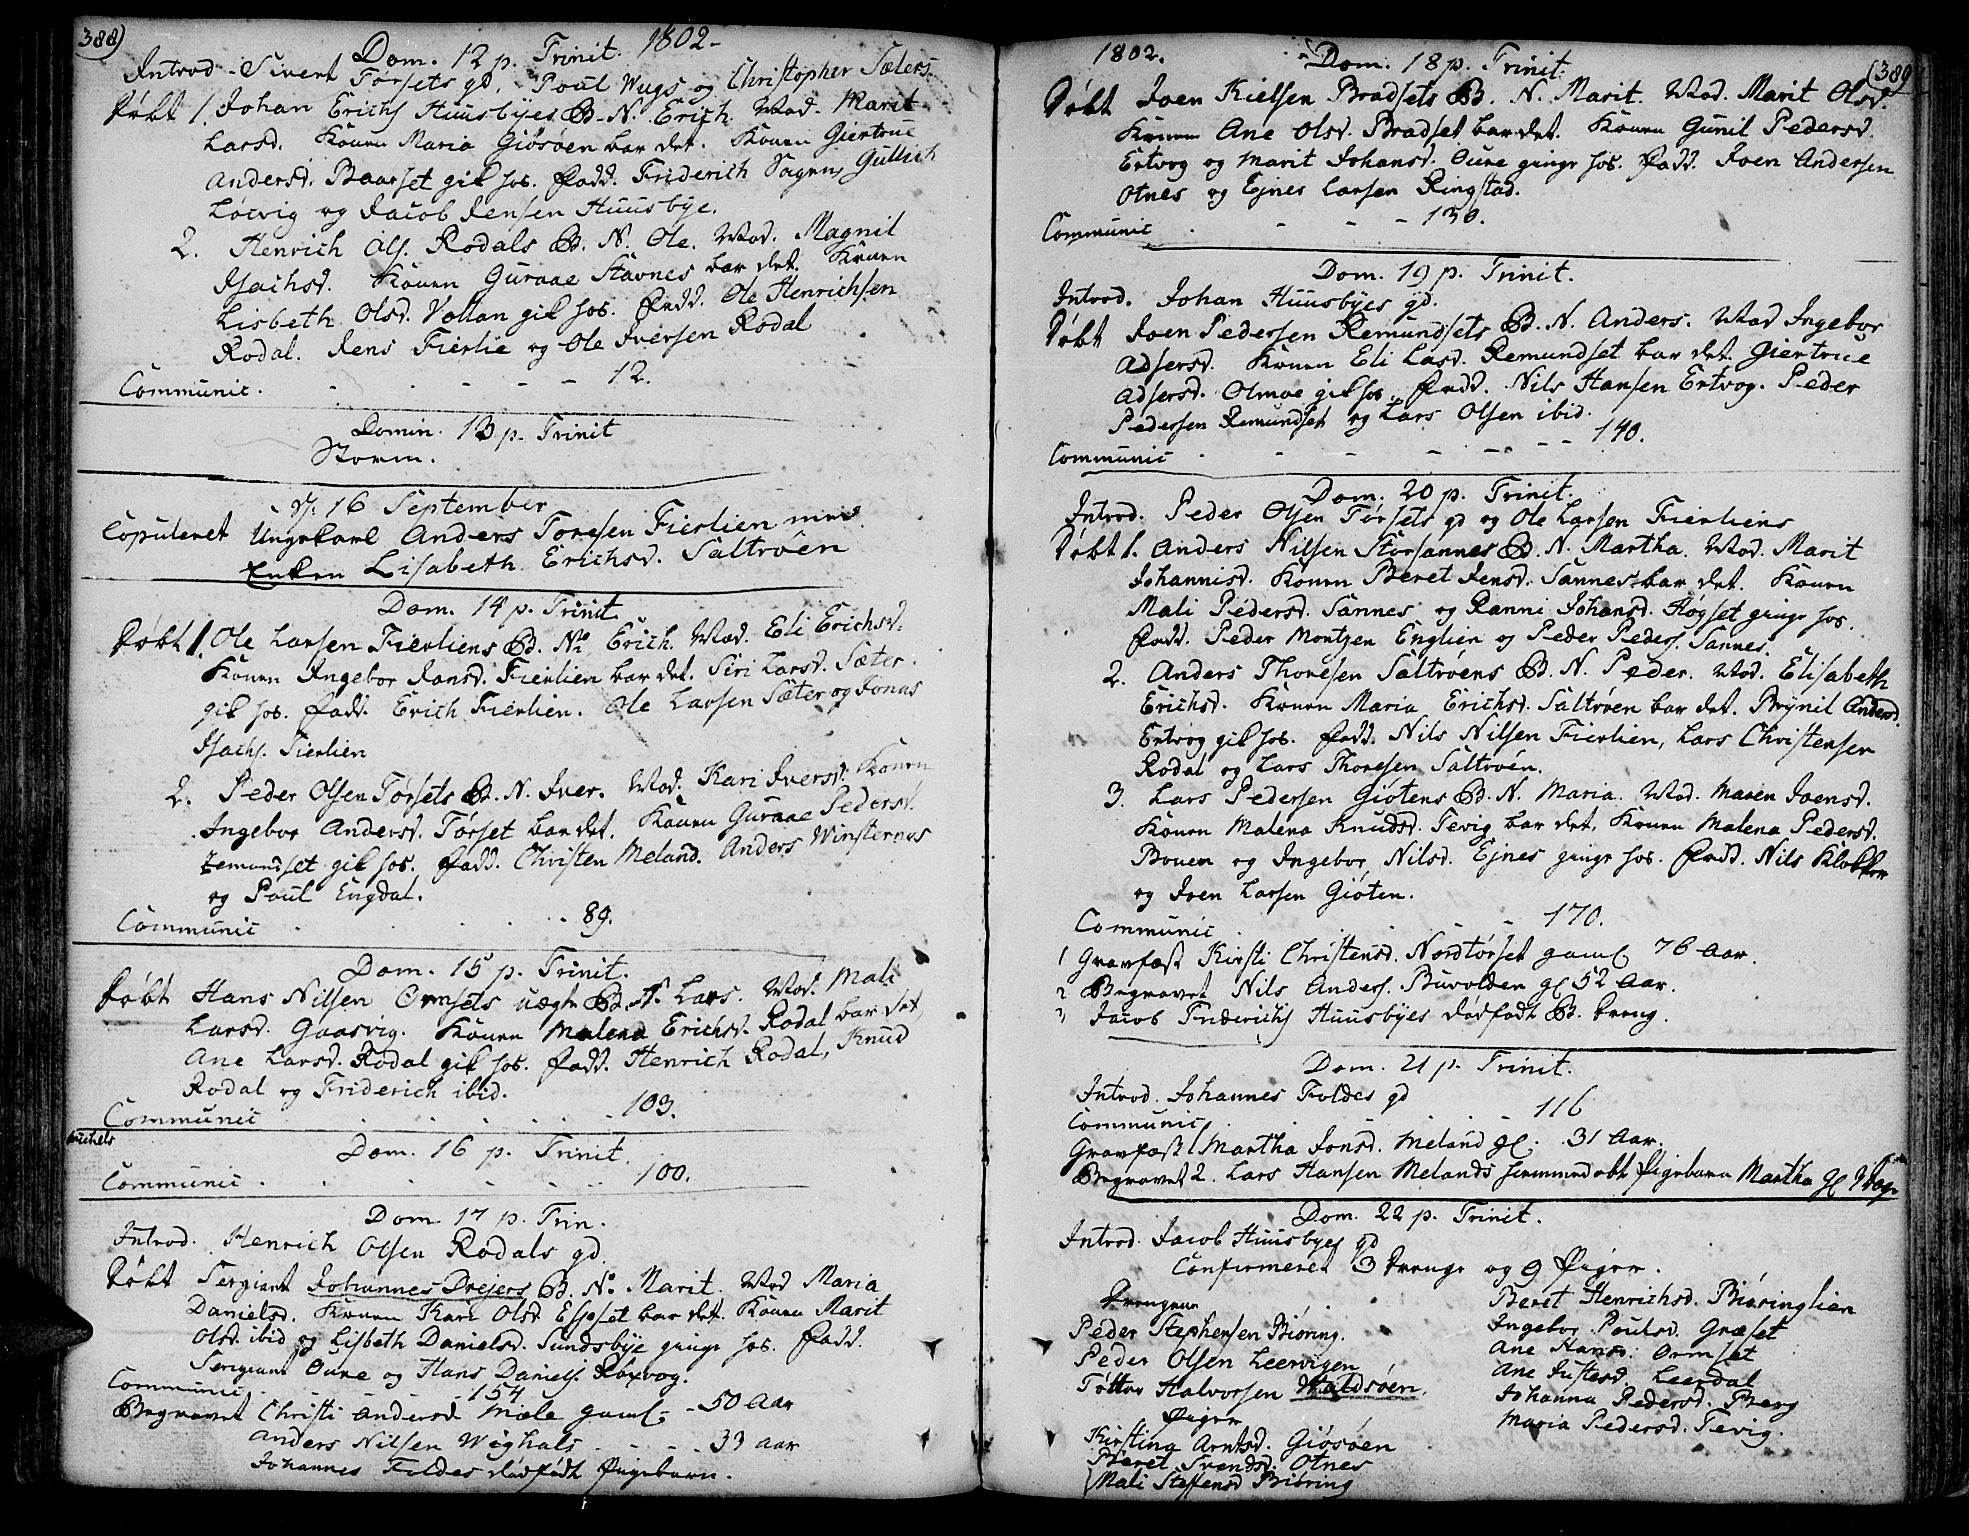 388)
Dom. 12 p. Trinit. 1802.
Introd. Sivert Torsets gd. Poul Wugs og Christopher Sæters.
Døbt 1. Johan Erichs Huusbyes B. N. Erich. Mod. Marit
Larsd. Konen Maria Giøsøen bar det. Konen Giertrue
Andersd. Baarset gik hos. Fadd. Friderich Sagen, Gullich
Løevig og Jacob Jensen Huusbye.
2. Henrich Ols. Rodals B. N. Ole. Mod. Magnil
Isachsd. Konen Guraae Stavnes bar det. Konen
Lisbeth Olsd. Vollan gik hos. Fadd. Ole Henrichsen
Rodal. Jens Fierlie og Ole Iversen Rodal
Communic. - - - - - 12.
Domin. 13 p. Trinit
Storm.
D. 16 September
Copuleret Ungkarl Anders Toresen Fierlien med
Enken Lisabeth Erichsd. Saltrøen
Dom. 14 p. Trinit.
Døbt 1. Ole Larsen Fierliens B. No. Erich. Mod. Eli Erichsd.
Konen Ingebor Jonsd. Fierlien bar det. Siri Larsd. Sæter
gik hos. Fadd. Erich Fierlien. Ole Larsen Sæter og Jonas
Isachs. Fierlien
2. Peder Olsen Torsets B. N. Iver. Mod. Kari Iversd. Konen
Ingebor Andersd. Torset bar det. Konen Guraae Pedersd.
Remundset gik hos. Fadd. Christen Meland. Anders Winsternes
og Poul Engdal.
Communic . . . . 89.
Dom. 15 p. Trinit.
Døbt Hans Nilsen Ormsets uægte B. N. Lars. Mod. Mali
Larsd. Gaasvig. Konen Malena Erichsd. Rodal bar det
Ane Larsd. Rodal gik hos. Fadd. Henrich Rodal, Knud
Rodal og Friderich ibid.
Communic . . . . . 103.
Michels
Dom. 16 p. Trinit.
Communic . . . . . 100.
Dom. 17 p. Trin.
Introd. Henrich Olsen Rodals gd.
Døbt Sergiant Johannes Drejers B. No. Marit. Mod Maria
Danielsd. Konen Kari Olsd Espset bar det. Konen Marit
Olsd. ibid og Lisbeth Danielsd. Sundsbye ginge hos. Fadd.
Sergiant Oure og Hans Daniels. Roxvog.
Communic . . 154
Begravet Christi Andersd Mæle gaml - 50 Aar
Anders Nilsen Wæghals - - - - 33 Aar
Johannes Foldes dødfødt Pigebarn.
1802. Dom. 18 p. Trinit. (389
Døbt Joen Kielsen Bradsets B. N. Marit. Mod. Marit Olsd.
Konen Ane Olsd. Bradset bar det. Konen Gunil Pedersd.
Ertvog og Marit Johansd. Oure ginge hos. Fadd. Joen Andersen
Otnes og Ejnes Larsen Ringstad.
Communic . - - - 130.
Dom. 19 p. Trinit.
Introd. Johan Huusbyes gd.
Døbt Joen Pedersen Remundsets B. N. Anders. Mod Ingebor
Adsersd. Konen Eli Lasd. Remundset bar det. Giertrue
Adsersd. Olmoe gik hos. Fadd. Nils Hansen Ertvog. Peder
Pedersen Remundset og Lars Olsen ibid.
Communic . - - - - - 140.
Dom. 20 p. Trinit.
Introd. Peder Olsen Torsets gd og Ole Larsen Fierliens
Døbt 1. Anders Nilsen Storsannes B. N. Martha. Mod. Marit
Johannisd. Konen Beret Jensd. Sannes bar det. Konen
Mali Pedersd. Sannes og Ranni Johansd. Høgset ginge hos.
Fadd. Peder Montzen Englien og Peder Peders. Sannes.
2. Anders Thoresen Saltrøens B. N. Peder. Mod. Elisabeth
Erichsd. Konen Maria Erichsd. Saltrøen bar det. Brynil Andersd.
Ertvog gik hos. Fadd. Nils Nilsen Fierlien, Lars Christensen
Rodal og Lars Thoresen Saltrøen.
3. Lars Pedersen Giøtens B. N. Maria. Mod. Maren Joensd.
Konen Malena Knudsd. Tevig bar det. Konen Malena Pedersd.
Boven og Ingebor Nilsd. Ejnes ginge hos. Fadd. Nils Klokker
og Joen Larsen Giøten.
Communic . - - 170.
1 Gravfæst Kirsti Christensd. Nordtørset gaml 76 Aar.
2 Begravet Nils Anders. Buvolden gl 52 Aar.
3) Jacob Friderichs Huusbyes dødfødt B. dreng.
Dom. 21 p. Trinit.
Introd. Johannes Foldes gd
Communic . - - - 116
Gravfæst 1 Martha Jonsd. Meland gl. 31 Aar.
Begravet 2. Lars Hansen Melands hiemmedøbt Pigebarn Martha gl
Dom. 22 p. Trinit.
Introd. Jacob Huusbyes gd
Confirmeret 3 Drenge og 9 Piger.
Drengene
Peder Stephensen Biøring.
Peder Olsen Leervigen
Tøttor Halvorsen Waldsøen.
Piger
Kirstina Arntsd. Giøsøen
Beret Svendsd. Otnes
Mali Stefensd Biøring
Beret Henrichsd. Biøringlien
Ingebor Poulsd. Græset
Ane Hansd. Ormset
Ane Justesd. Leerdal
Johanna Pedersd. Berg
Maria Pedersd. Tevig.